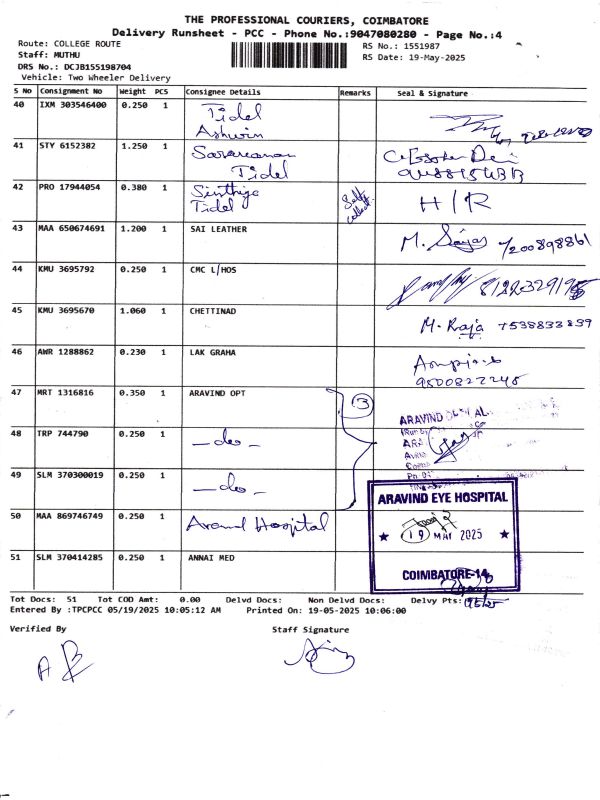 THE PROFESSIONAL COURIERS, COIMBATORE
Delivery Runsheet - PCC - Phone No.:9047080280 - Page No.:4
Route: COLLEGE ROUTE
Staff: MUTHU
DRS No.: DCJB155198704
Vehicle: Two Wheeler Delivery
RS No.: 1551987
RS Date: 19-May-2025
S No Consignment No Weight PCS Consignee Details Remarks Seal & Signature
40 IXM 303546400 0.250 1 Tidel
Ashwin
41 STY 6152382 1.250 1 Saravanan
Tidel
42 PRO 17944054 0.380 1 Sinthiya Self H/R
Tidel collect
43 MAA 650674691 1.200 1 SAI LEATHER
M. 7200898861
44 KMU 3695792 0.250 1 CMC L/HOS
45 KMU 3695670 1.060 1 CHETTINAD
M. Raja 7538833839
46 AWR 1288862 0.230 1 LAK GRAHA
9500822245
47 MRT 1316816 0.350 1 ARAVIND OPT 3
ARAVIND
48 TRP 744790 0.250 1 -do-
49 SLM 370300019 0.250 1 -do-
ARAVIND EYE HOSPITAL
50 MAA 869746749 0.250 1 Aravind Hospital
19 MAY 2025
51 SLM 370414285 0.250 1 ANNAI MED
COIMBATORE-14
Tot Docs: 51 Tot COD Amt: 0.00 Delvd Docs: Non Delvd Docs: Delvy Pts:
Entered By :TPCPCC 05/19/2025 10:05:12 AM Printed On: 19-05-2025 10:06:00
Verified By Staff Signature